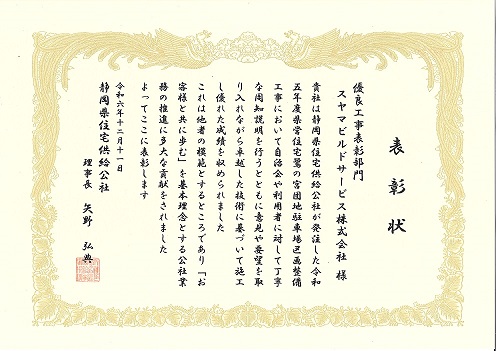 表彰状
優良工事表彰部門
スヤマビルドサービス株式会社 様
貴社は静岡県住宅供給公社が発注した令和
五年度県営住宅鷺の宮団地駐車場区画整備
工事において自治会や利用者に対して丁寧
な周知説明を行うとともに意見や要望を取
り入れながら卓越した技術に基づいて施工
し優れた成績を収められました
これは他者の模範とするところであり「お
客様と共に歩む」を基本理念とする公社業
務の推進に多大な貢献をされました
よってここに表彰します
令和六年十二月十一日
静岡県住宅供給公社
理事長 矢野 弘典